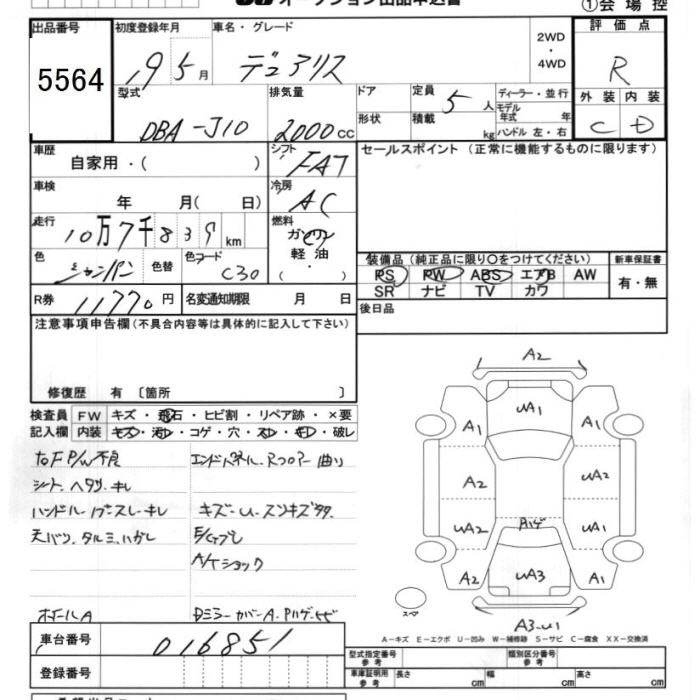 オークション出品申込書
①会場控
出品番号 初度登録年月 車名・グレード 2WD・4WD 評価点
5564 19 5月 デュアリス R
型式 排気量 ドア 定員 5人 ディーラー・並行 外装 内装
DBA-J10 2000cc 形状 積載 kg モデル年式 年 ハンドル 左・右 C D
車歴 シフト セールスポイント (正常に機能するものに限ります)
自家用・( ) FA7
車検 冷房
年 月( 日) AC
走行 燃料
10万7千839km ガソリン
色 色替 色コード 軽油
シャンパン C30 ( ・ )
装備品 (純正品に限り○をつけてください) 新車保証書
PS PW ABS エアB AW 有・無
SR ナビ TV カワ
R券 11770円 名変通知期限 月 日 後日品
注意事項申告欄(不具合内容等は具体的に記入して下さい)
修復歴 有 〔箇所 〕
検査員 FW キズ・飛石・ヒビ割・リペア跡・×要
記入欄 内装 キズ・汚れ・コゲ・穴・スレ・キレ・破レ
右F P/W不良 エンドパネル、Rフロアー曲り
シート、ヘタリ、キレ
ハンドル 、スレ、キレ キズ・U、スリキズ多々
天バリ、タルミ、ハガシ E/Gブレ
A/Tショック
ホイールA Dミラーカバー A、Pハゲ、ヒビ
A2
UA1
A1 A1
A2 UA2
UA2 Pハゲ UA1
A2 UA3 A1
スペア A3-U1
A−キズ E−エクボ U−凹み W−補修跡 S−サビ C−腐食 XX−交換済
車台番号 016851 型式指定番号 参考 類別区分番号 参考
登録番号 車庫証明用 参考 長さ cm 幅 cm 高さ cm